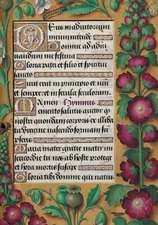 Deus in adiutorium
meum intende
Domine ad adiu
uandum me festina
Gloria patri et filio et spiritui
sancto
Sicut erat in principio et
nunc et semper et in secula seculorum
Amen Hymnus
Memento salutis auctor
quod nostri quondam corporis ex illiba
ta virgine nascendo formam sum
pseris
Maria mater gratie mater mi
sericordie tu nos ab hoste protege
et hora mortis suscipe
Gloria tibi domine qui natus